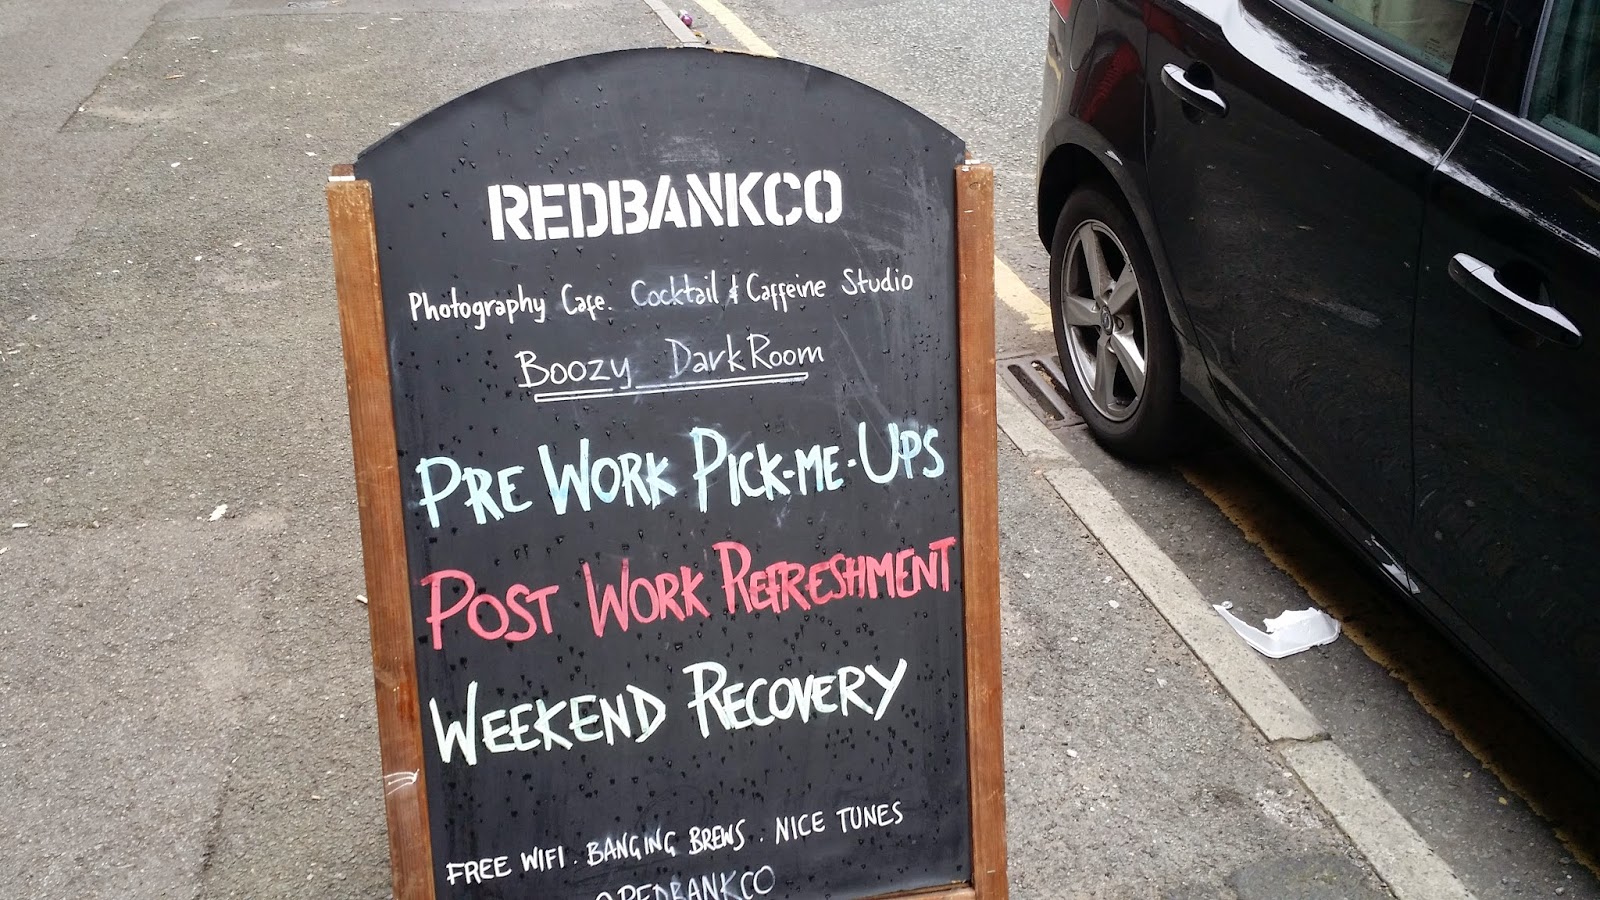 REDBANKCO
Photography Cafe. Cocktail & Caffeine Studio
Boozy DarkRoom
PRE WORK PICK-ME-UPS
POST WORK REFRESHMENT
WEEKEND RECOVERY
FREE WIFI. BANGING BREWS. NICE TUNES
@REDBANKCO